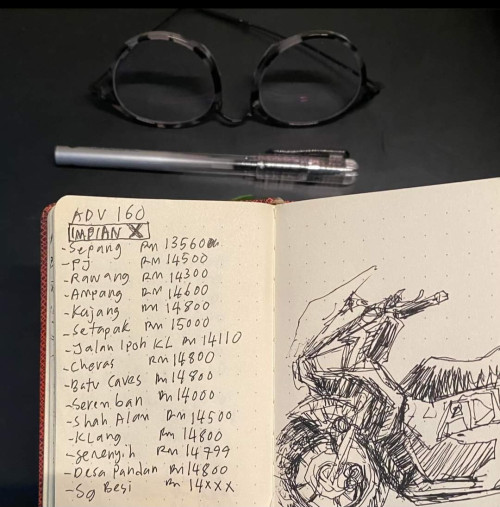 ADV 160
IMPIAN X
- Sepang RM 13560
- PJ RM 14500
- Rawang RM 14300
- Ampang RM 14600
- Kajang RM 14800
- Setapak RM 15000
- Jalan Ipoh KL RM 14110
- Cheras RM 14800
- Batu Caves RM 14800
- Seremban RM 14000
- Shah Alam RM 14500
- KLang RM 14800
- Semenyih RM 14799
- Desa Pandan RM 14800
- Sg Besi RM 14xxx